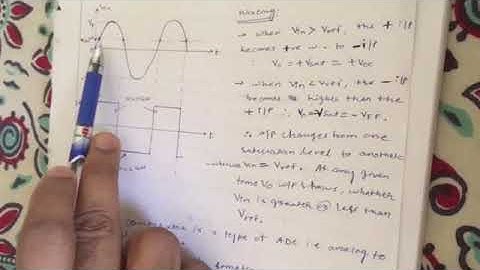 Vin
t
t
Working:
→ when Vin > Vref, the + i/p
becomes +ve w.r. to -i/p
∴ Vo = +Vsat = +Vcc
→ when Vin < Vref, the - i/p
becomes higher than the
+ i/p ∴ Vo = -Vsat = -VEE.
∴ o/p changes from one
saturation level to another
Vin = Vref. At any given
time Vo o/p shows, whether
Vin is greater or less than
Vref.
is a type of ADC i.e analog to